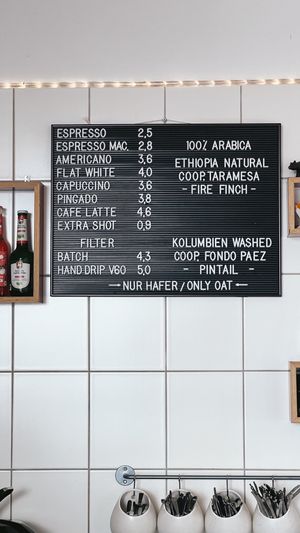 ESPRESSO 2,5
ESPRESSO MAC. 2,8
AMERICANO 3,6
FLAT WHITE 4,0
CAPUCCINO 3,6
PINGADO 3,8
CAFE LATTE 4,6
EXTRA SHOT 0,9
FILTER
BATCH 4,3
HAND DRIP V60 5,0
100% ARABICA
ETHIOPIA NATURAL
COOP. TARAMESA
- FIRE FINCH -
KOLUMBIEN WASHED
COOP. FONDO PAEZ
- PINTAIL -
→ NUR HAFER / ONLY OAT ←